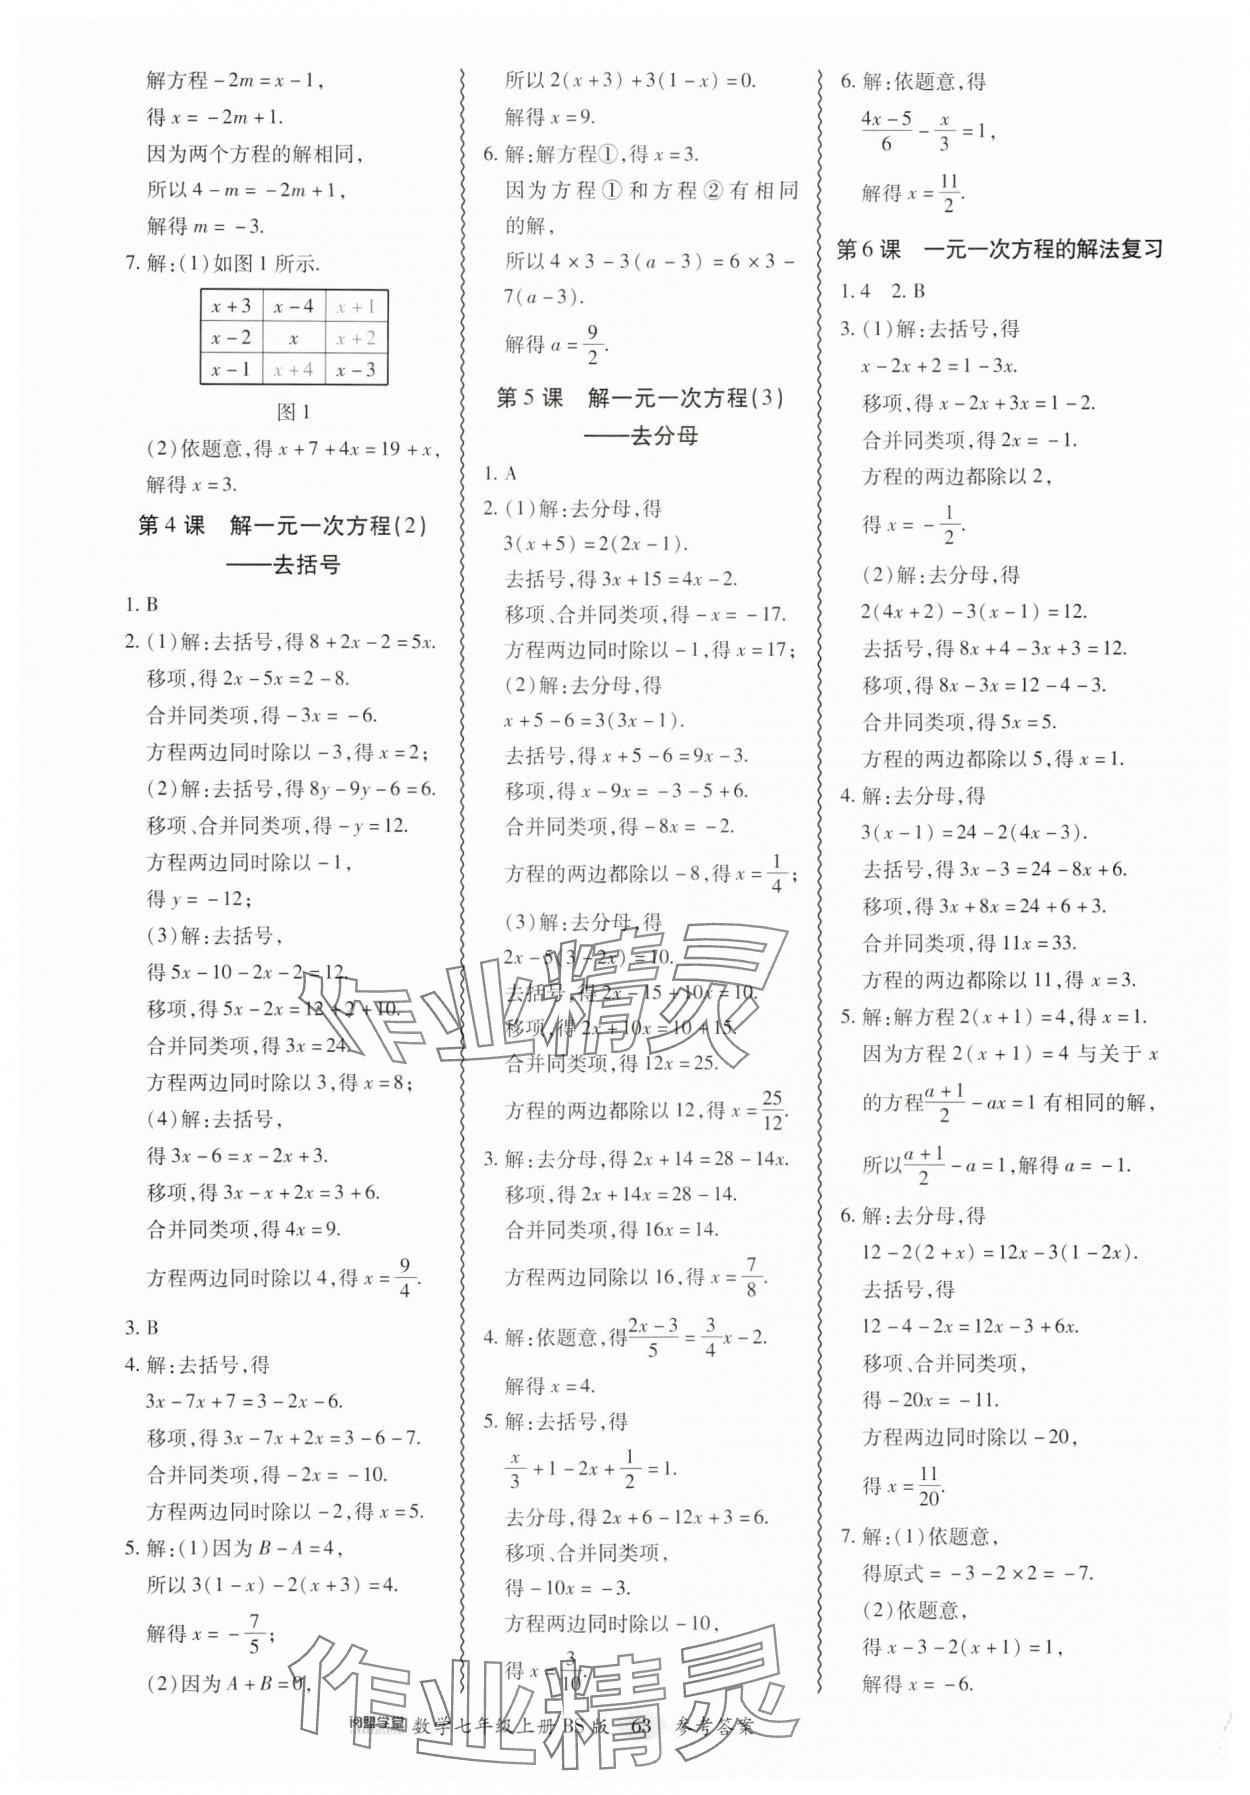 解方程-2m=x-1,
得x=-2m+1.
因为两个方程的解相同,
所以4-m=-2m+1,
解得m=-3.
7.解:(1)如图1所示.
x+3 x-4 x+1
x-2 x x+2
x-1 x+4 x-3
图1
(2)依题意,得x+7+4x=19+x,
解得x=3.
第4课 解一元一次方程(2)
——去括号
1.B
2.(1)解:去括号,得8+2x-2=5x.
移项,得2x-5x=2-8.
合并同类项,得-3x=-6.
方程两边同时除以-3,得x=2;
(2)解:去括号,得8y-9y-6=6.
移项、合并同类项,得-y=12.
方程两边同时除以-1,
得y=-12;
(3)解:去括号,
得5x-10-2x-2=12.
移项,得5x-2x=12+2+10.
合并同类项,得3x=24.
方程两边同时除以3,得x=8;
(4)解:去括号,
得3x-6=x-2x+3.
移项,得3x-x+2x=3+6.
合并同类项,得4x=9.
方程两边同时除以4,得x=9/4.
3.B
4.解:去括号,得
3x-7x+7=3-2x-6.
移项,得3x-7x+2x=3-6-7.
合并同类项,得-2x=-10.
方程两边同时除以-2,得x=5.
5.解:(1)因为B-A=4,
所以3(1-x)-2(x+3)=4.
解得x=-7/5;
(2)因为A+B=0,
所以2(x+3)+3(1-x)=0.
解得x=9.
6.解:解方程①,得x=3.
因为方程①和方程②有相同
的解,
所以4×3-3(a-3)=6×3-
7(a-3).
解得a=9/2.
第5课 解一元一次方程(3)
——去分母
1.A
2.(1)解:去分母,得
3(x+5)=2(2x-1).
去括号,得3x+15=4x-2.
移项、合并同类项,得-x=-17.
方程两边同时除以-1,得x=17;
(2)解:去分母,得
x+5-6=3(3x-1).
去括号,得x+5-6=9x-3.
移项,得x-9x=-3-5+6.
合并同类项,得-8x=-2.
方程的两边都除以-8,得x=1/4;
(3)解:去分母,得
2x-5(3-2x)=10.
去括号,得2x-15+10x=10.
移项,得2x+10x=10+15.
合并同类项,得12x=25.
方程的两边都除以12,得x=25/12.
3.解:去分母,得2x+14=28-14x.
移项,得2x+14x=28-14.
合并同类项,得16x=14.
方程两边同除以16,得x=7/8.
4.解:依题意,得(2x-3)/5=3/4x-2.
解得x=4.
5.解:去括号,得
x/3+1-2x+1/2=1.
去分母,得2x+6-12x+3=6.
移项、合并同类项,
得-10x=-3.
方程两边同时除以-10,
得x=3/10.
6.解:依题意,得
(4x-5)/6-x/3=1,
解得x=11/2.
第6课 一元一次方程的解法复习
1.4 2.B
3.(1)解:去括号,得
x-2x+2=1-3x.
移项,得x-2x+3x=1-2.
合并同类项,得2x=-1.
方程的两边都除以2,
得x=-1/2.
(2)解:去分母,得
2(4x+2)-3(x-1)=12.
去括号,得8x+4-3x+3=12.
移项,得8x-3x=12-4-3.
合并同类项,得5x=5.
方程的两边都除以5,得x=1.
4.解:去分母,得
3(x-1)=24-2(4x-3).
去括号,得3x-3=24-8x+6.
移项,得3x+8x=24+6+3.
合并同类项,得11x=33.
方程的两边都除以11,得x=3.
5.解:解方程2(x+1)=4,得x=1.
因为方程2(x+1)=4与关于x
的方程(a+1)/2-ax=1有相同的解,
所以(a+1)/2-a=1,解得a=-1.
6.解:去分母,得
12-2(2+x)=12x-3(1-2x).
去括号,得
12-4-2x=12x-3+6x.
移项、合并同类项,
得-20x=-11.
方程两边同时除以-20,
得x=11/20.
7.解:(1)依题意,
得原式=-3-2×2=-7.
(2)依题意,
得x-3-2(x+1)=1,
解得x=-6.
作业精灵
作业精灵
阅盟学堂 数学七年级上册 BS版 63 参考答案